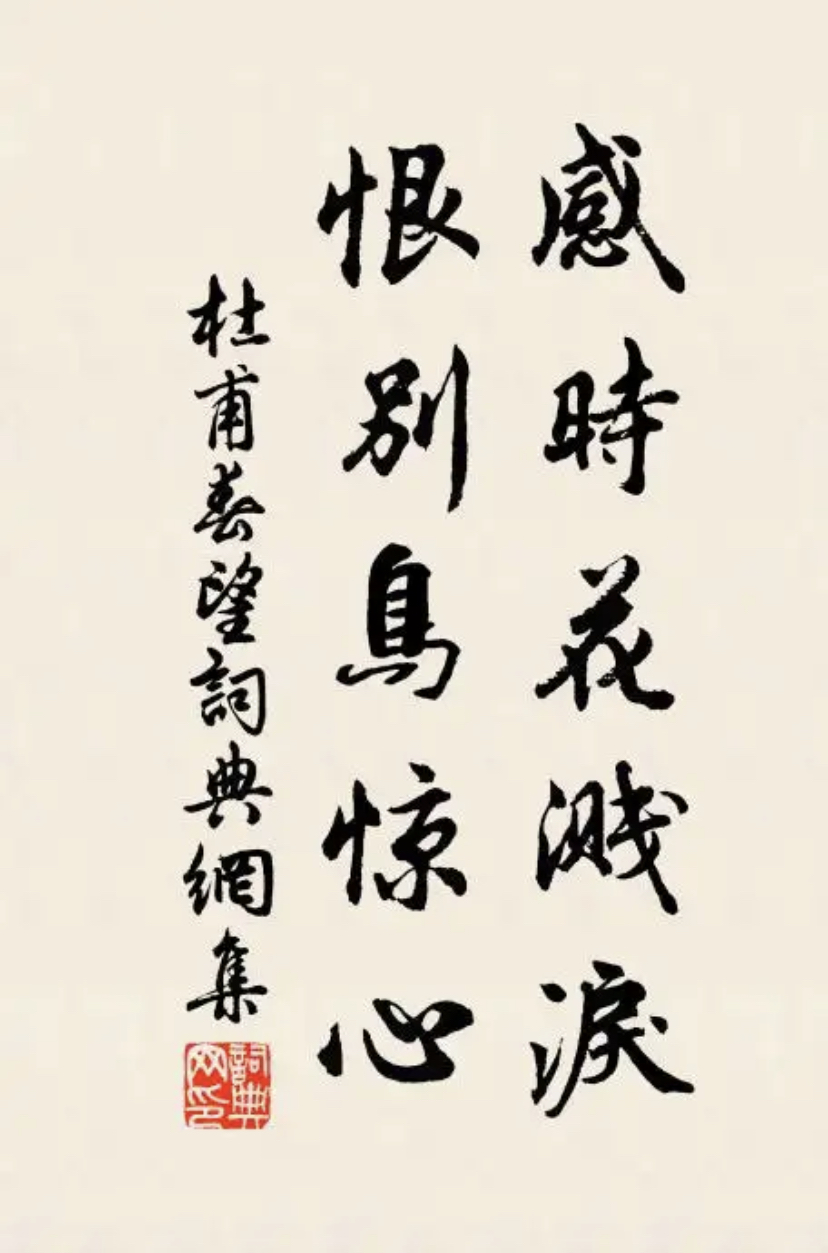 感時花濺淚
恨别鳥惊心
杜甫春望詞典網集
詞典网印